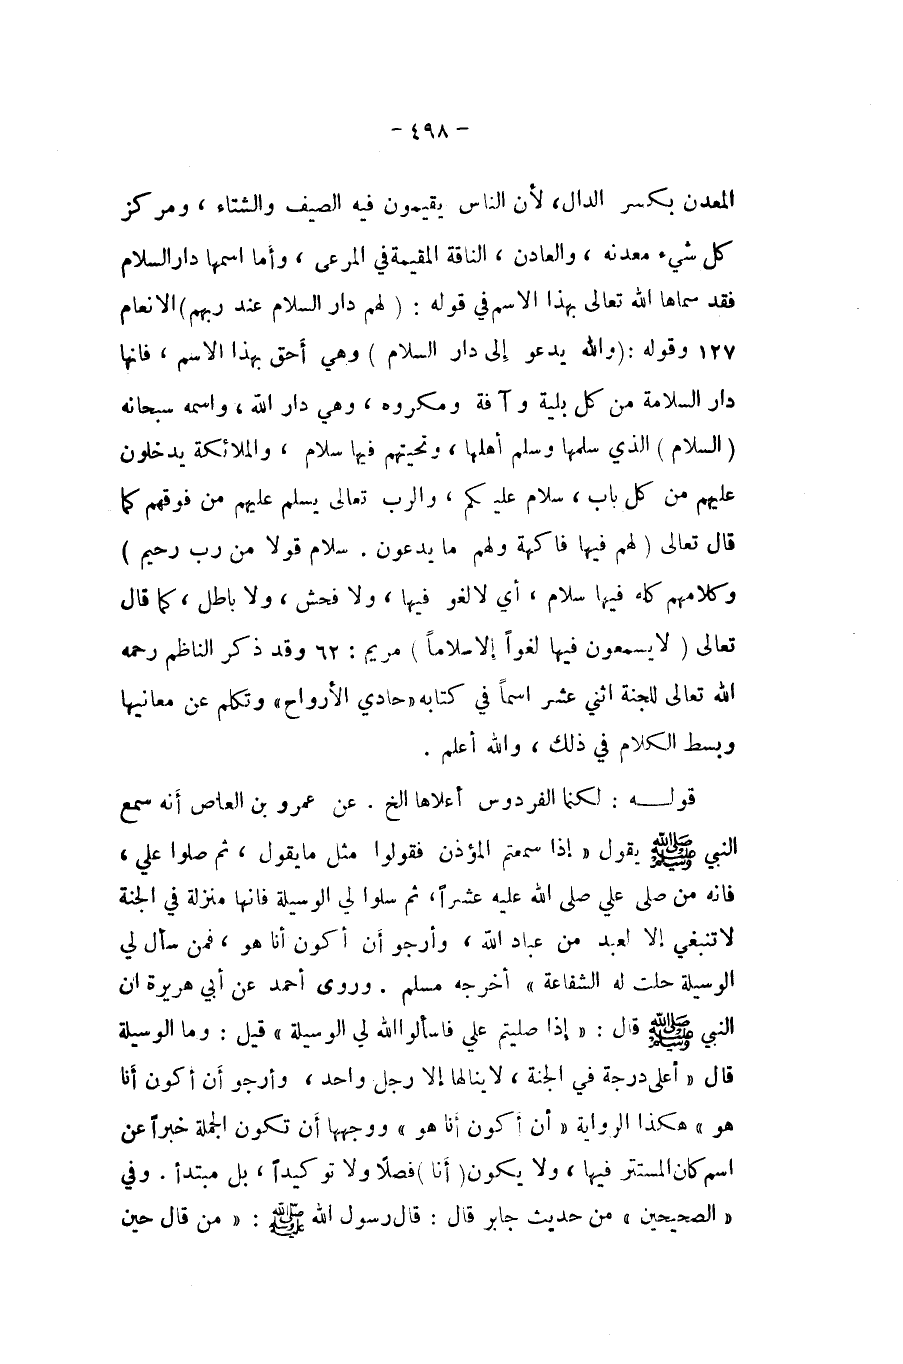 - ٤٩٨ -
المعدن بكسر الدال، لأن الناس يقيمون فيه الصيف والشتاء ، ومركز
كل شيء معدنه ، والعادن ، الناقة المقيمة في المرعى ، وأما اسمها دار السلام
فقد سماها الله تعالى بهذا الاسم في قوله : ( لهم دار السلام عند ربهم ) الانعام
١٢٧ وقوله : ( والله يدعو إلى دار السلام ) وهي أحق بهذا الاسم ، فانها
دار السلامة من كل بلية وآفة ومكروه ، وهي دار الله ، واسمه سبحانه
( السلام ) الذي سلمها وسلم أهلها ، وتحيتهم فيها سلام ، والملائكة يدخلون
عليهم من كل باب ، سلام عليكم ، والرب تعالى يسلم عليهم من فوقهم كما
قال تعالى ( لهم فيها فاكهة ولهم ما يدعون . سلام قولا من رب رحيم )
وكلامهم كله فيها سلام ، أي لالغو فيها ، ولا فحش ، ولا باطل ، كما قال
تعالى ( لايسمعون فيها لغواً إلاسلاماً ) مريم : ٦٢ وقد ذكر الناظم رحمه
الله تعالى للجنة اثني عشر اسماً في كتابه «حادي الأرواح» وتكلم عن معانيها
وبسط الكلام في ذلك ، والله أعلم .
قولـــه : لكنما الفردوس أعلاها الخ . عن عمرو بن العاص أنه سمع
النبي ﷺ يقول « إذا سمعتم المؤذن فقولوا مثل مايقول ، ثم صلوا علي ،
فانه من صلى علي صلى الله عليه عشراً، ثم سلوا لي الوسيلة فانها منزلة في الجنة
لاتنبغي إلا لعبد من عباد الله ، وأرجو أن أكون أنا هو ، فمن سأل لي
الوسيلة حلت له الشفاعة » أخرجه مسلم . وروى أحمد عن أبي هريرة ان
النبي ﷺ قال : « إذا صليتم علي فاسألوا الله لي الوسيلة » قيل : وما الوسيلة
قال « أعلى درجة في الجنة ، لاينالها إلا رجل واحد ، وأرجو أن أكون أنا
هو » هكذا الرواية « أن أكون أنا هو » ووجهها أن تكون الجملة خبراً عن
اسم كان المستتر فيها ، ولا يكون ( أنا ) فصلًا ولا توكيداً ، بل مبتدأ . وفي
« الصحيحين » من حديث جابر قال : قال رسول الله ﷺ : « من قال حين